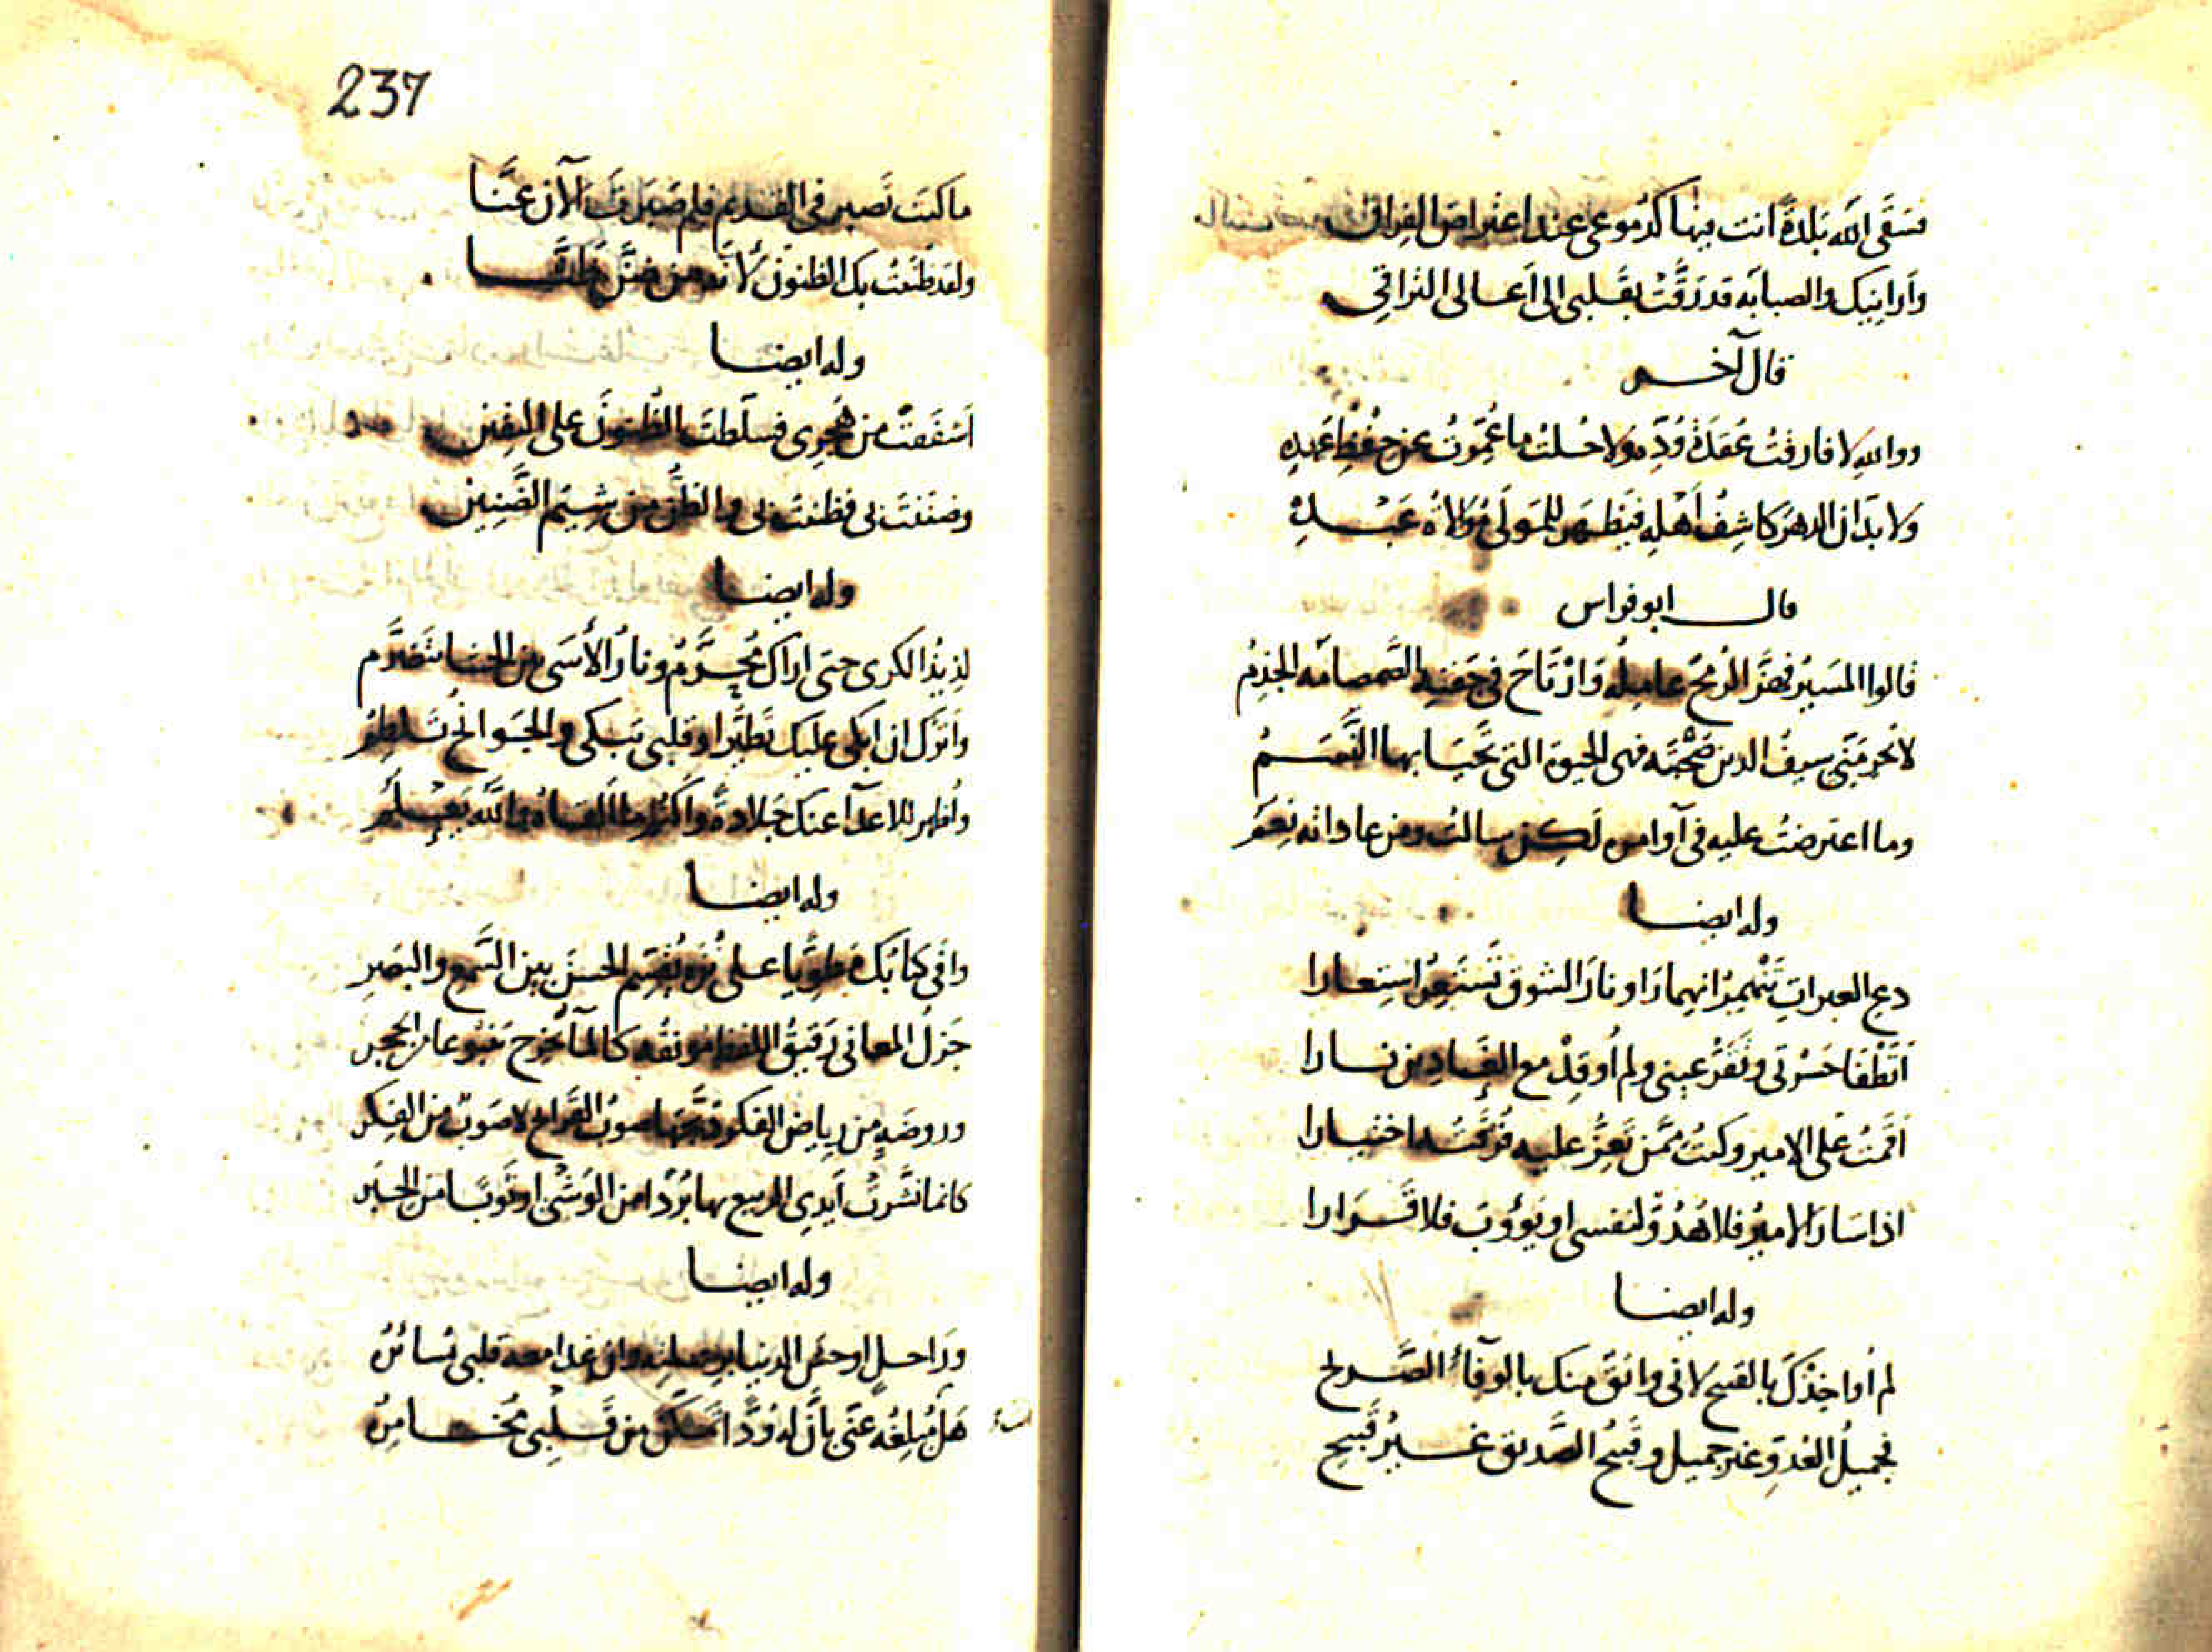 فسقى الله بلدة انت فيها كدموعى عند اعتراض الفراق
وارانيك والصبابه قد رقت بقلبى الى اعالى التراقى
قال آخر
ووالله لا فارقت عقدة وده ولا حلت ما عمرت عن حفظ عهده
ولا بد ان الدهر كاشف أهله فيظهر للمولى موالاة عبده
قال ابو فراس
قالوا المسير فهز الرمح عامله وارتاح فى جفنه الصمصامه الخذم
لا تحرمنى سيف الدين صحبته فهى الحيوة التى تحيا بها النسم
وما اعترضت عليه فى آوامره لكن سالت ومن عاداته نعم
وله ايضا
دع العبرات تنهمر انهمارا ونار الشوق تستعر استعارا
أتطفا حسرتى وتقر عينى ولم أوقد مع الغادين نارا
اقمت على الامير وكنت ممن تعز عليه فرقته اختيارا
اذا سار الامير فلا هدو لنفسى او يؤوب فلا قرارا
وله ايضا
لم أواخذك بالقبيح لانى واثق منك بالوفآء الصريح
فجميل العدو غير جميل وقبيح الصديق غير قبيح
237
ما كنت تصبر فى القديم فلم صبرت الآن عنا
ولقد ظننت بك الظنون لأنه من ضن ظنا
وله ايضا
اشفقت من هجرى فسلطت الظنون على اليقين
وضننت بى فظننت بى والظن من شيم الضنين
وله ايضا
لذيذ الكرى حتى اراك محرم ونار الأسى بين الحشا تتضرم
واترك ان ابكى عليك تطيرا وقلبى يبكى والجوانح تلطم
وأظهر للاعدآ عنك جلادة واكتم ما القاه والله يعلم
وله ايضا
وافى كتابك مطويا على نزه يقسم الحسن بين السمع والبصر
جزل المعانى رقيق اللفظ مونقه كالمآ يخرج ينبوعا من الحجر
وروضة من رياض الفكر دبجها صوب القرائح لا صوب من الفكر
كانما نشرت أيدى الربيع بها بردا من الوشى او ثوبا من الحبر
وله ايضا
وراحل اوحش الدنيا برحلته وان غدا معه قلبى يسائره
هل مبلغه عنى بان له ودا تمكن من قلبى يخامره